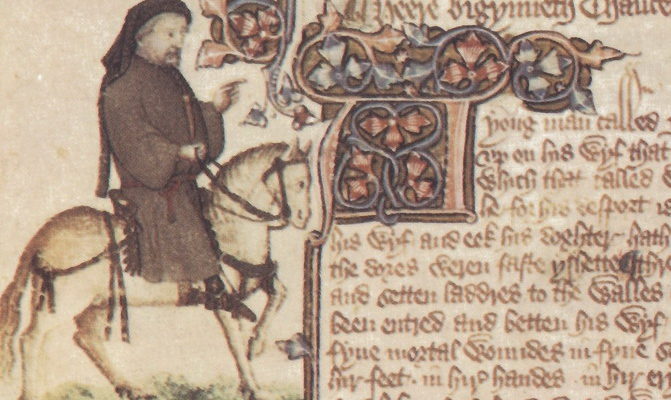 Heere bigynneth Chauce
yong man called
vp on his wyf that
which that called
he for his desport
his wyf and eek his doghter hath
the dores weren faste yshette
and setten laddres to the walles
been entred and betten his wyf
fyue mortal woundes in fyue
hir feet . in hir handes . in hir er